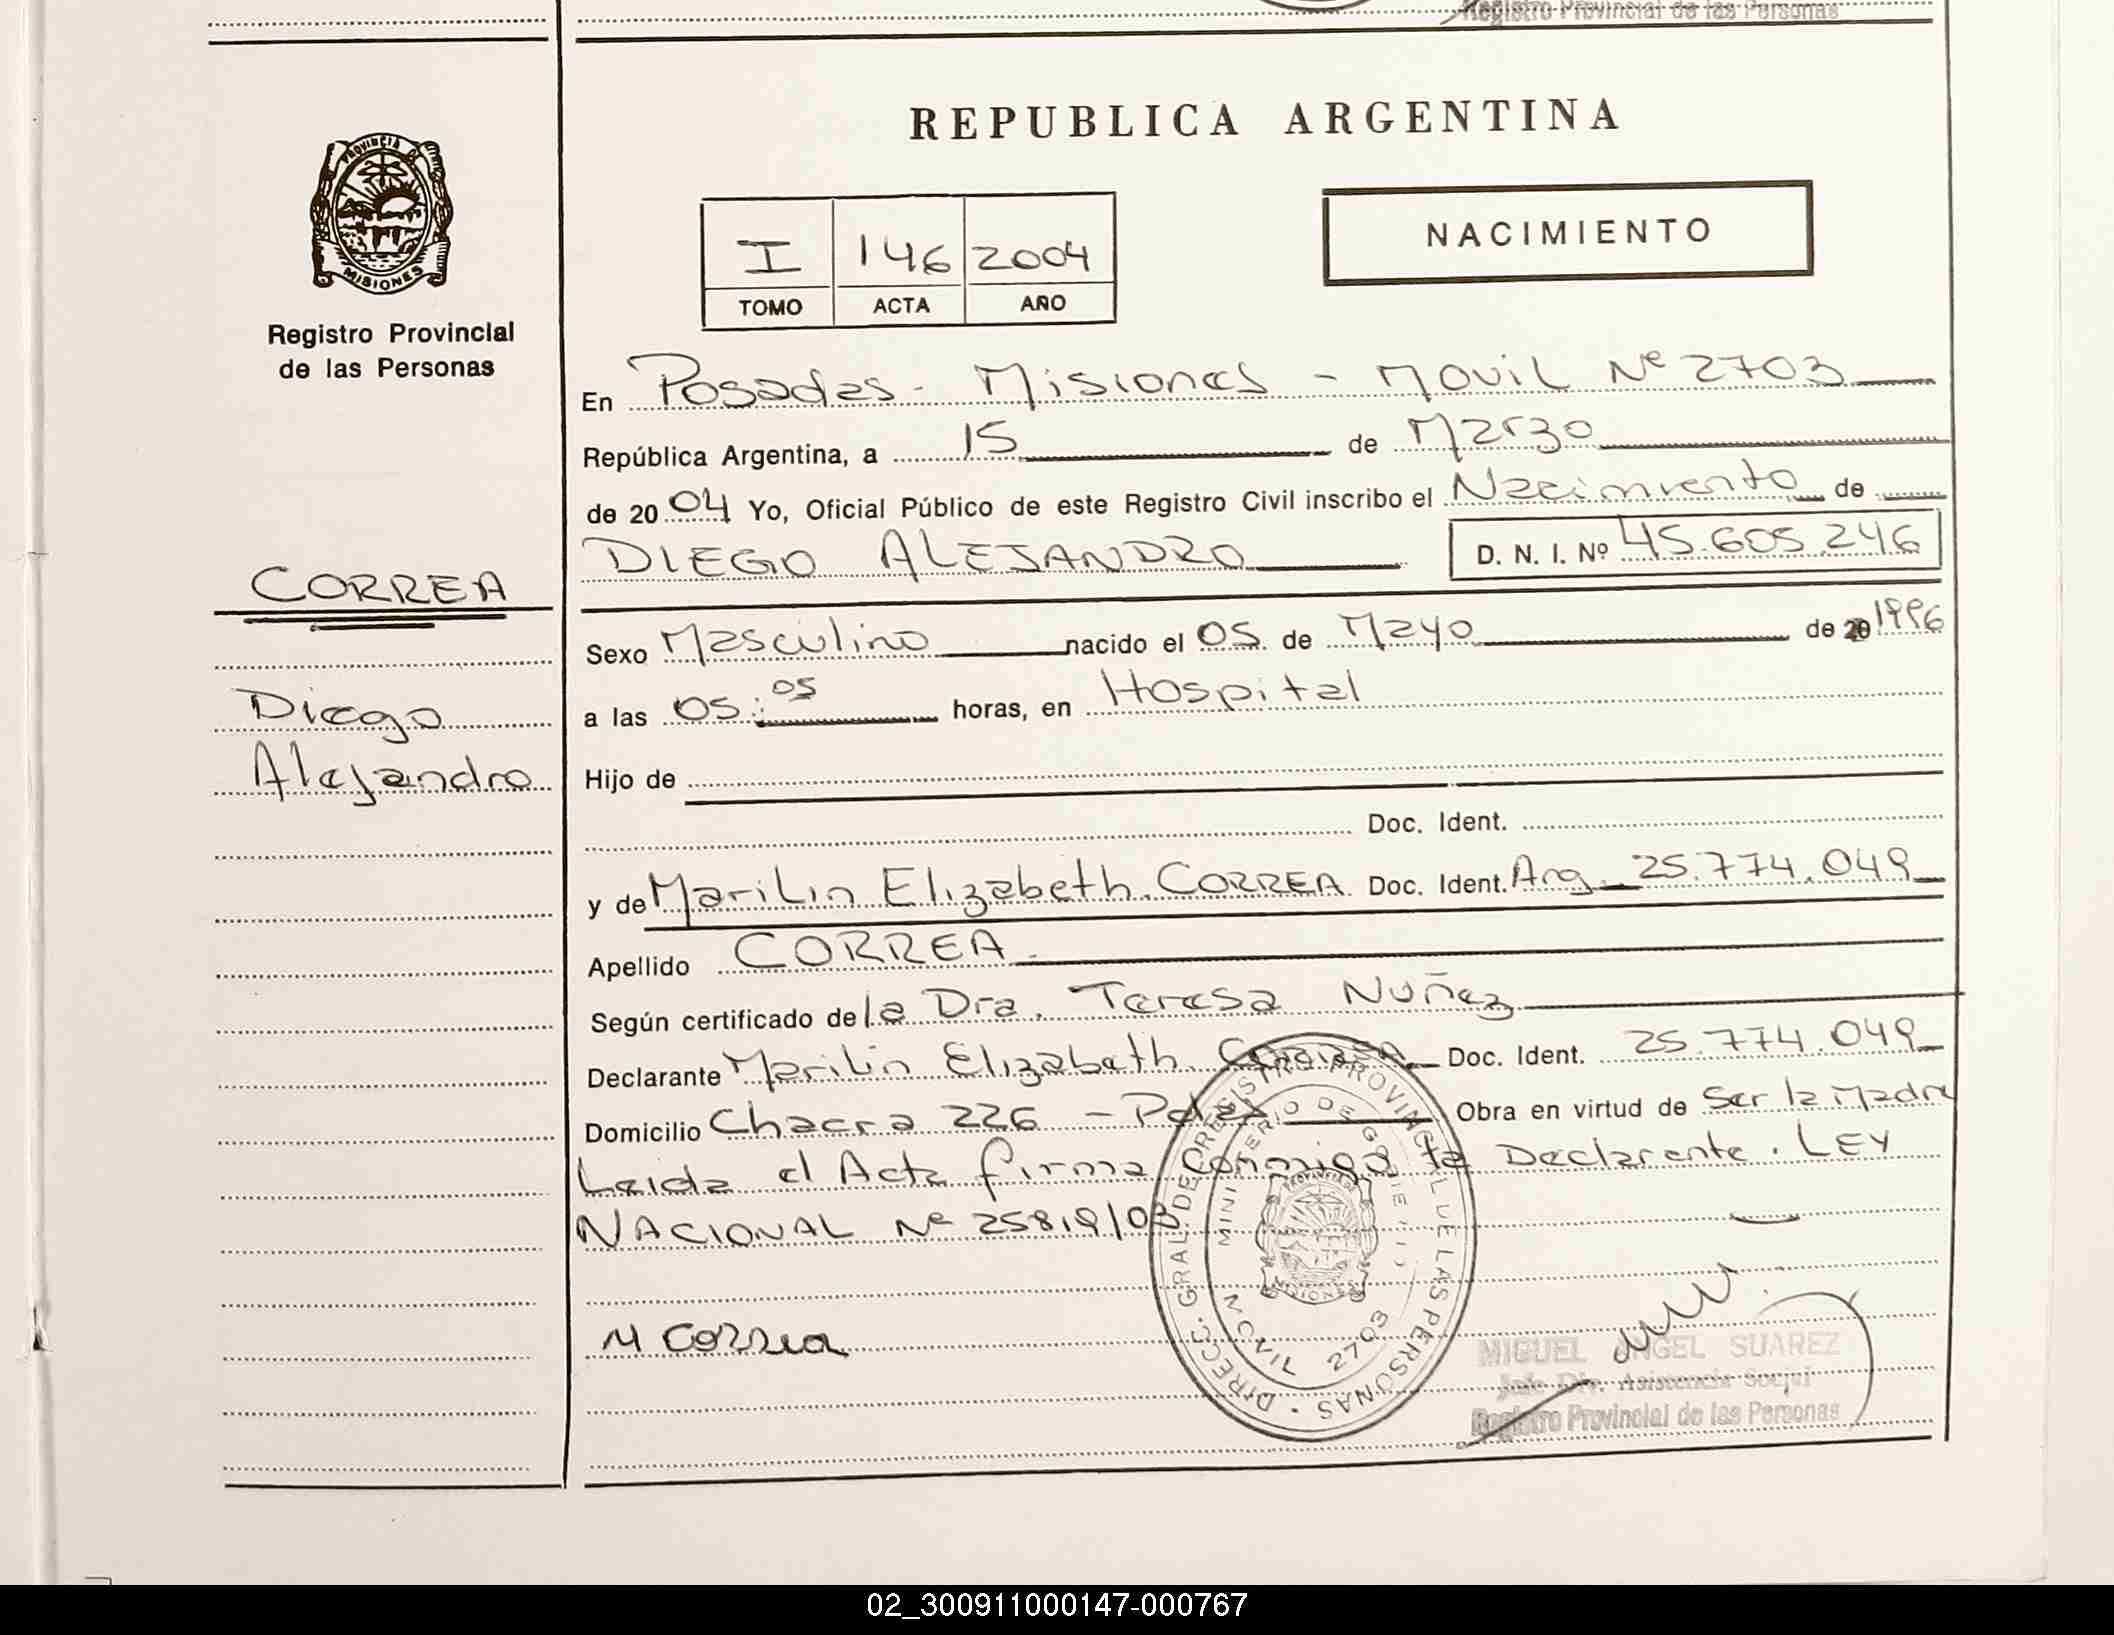 Registro Provincial de las Personas
REPUBLICA ARGENTINA
PROVINCIA DE
MISIONES
Registro Provincial
de las Personas
I 146 2004
TOMO ACTA AÑO
NACIMIENTO
En Posadas - Misiones - Movil Nº 2703
República Argentina, a 15 de Marzo
de 2004 Yo, Oficial Público de este Registro Civil inscribo el Nacimiento de
DIEGO ALEJANDRO D. N. I. Nº 45.605.246
CORREA
Diego
Alejandro
Sexo Masculino nacido el 05 de Mayo de 1996
a las 05:05 horas, en Hospital
Hijo de
Doc. Ident.
y de Marilin Elizabeth CORREA Doc. Ident. Arg. 25.774.049
Apellido CORREA
Según certificado de la Dra. Teresa Nuñez
Declarante Marilin Elizabeth Correa Doc. Ident. 25.774.049
Domicilio Chacra 226 - Pdas Obra en virtud de Ser la Madre
Leida el Acta firma conmigo la Declarante. LEY
NACIONAL Nº 25819/03
M Correa
DIRECC. GRAL. DE REGISTRO PROVINCIAL DE LAS PERSONAS
MINISTERIO DE GOBIERNO
MOVIL 2703
MIGUEL ANGEL SUAREZ
Jefe Div. Asistencia Social
Registro Provincial de las Personas
02_300911000147-000767